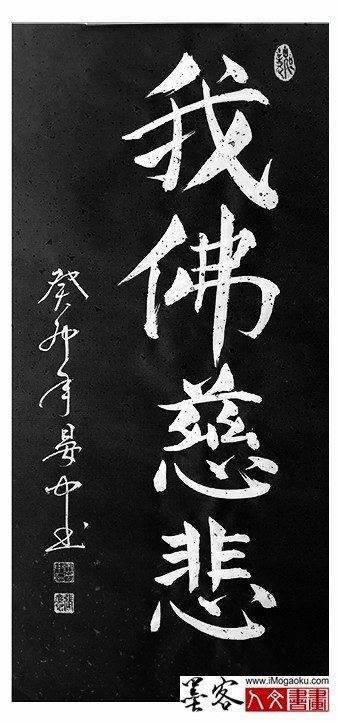 我佛慈悲
癸卯年晏中书
墨客
www.iMogaoku.com
人文書畫